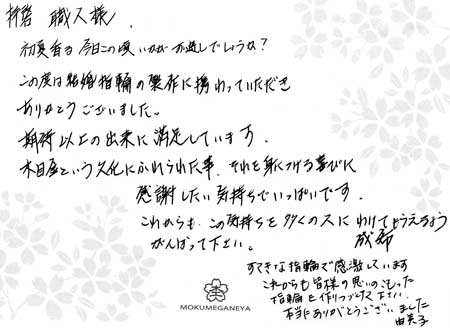 職人様
初夏香る今日この頃いかがお過しでしょうな？
この度は結婚指輪の製作に携わっていただき
ありがとうございました。
期待以上の出来に満足しています。
木目金という文化にふれられた事、それを身につける喜びに
感謝したい気持ちでいっぱいです。
これからも、この気持ちを多くの人にわけてもらえるよう
がんばって下さい。
成希
すてきな指輪で感激しています
これからも皆様の思いのこもった
指輪を作りつづけて下さい。
本当にありがとうございました
由美子
MOKUMEGANEYA